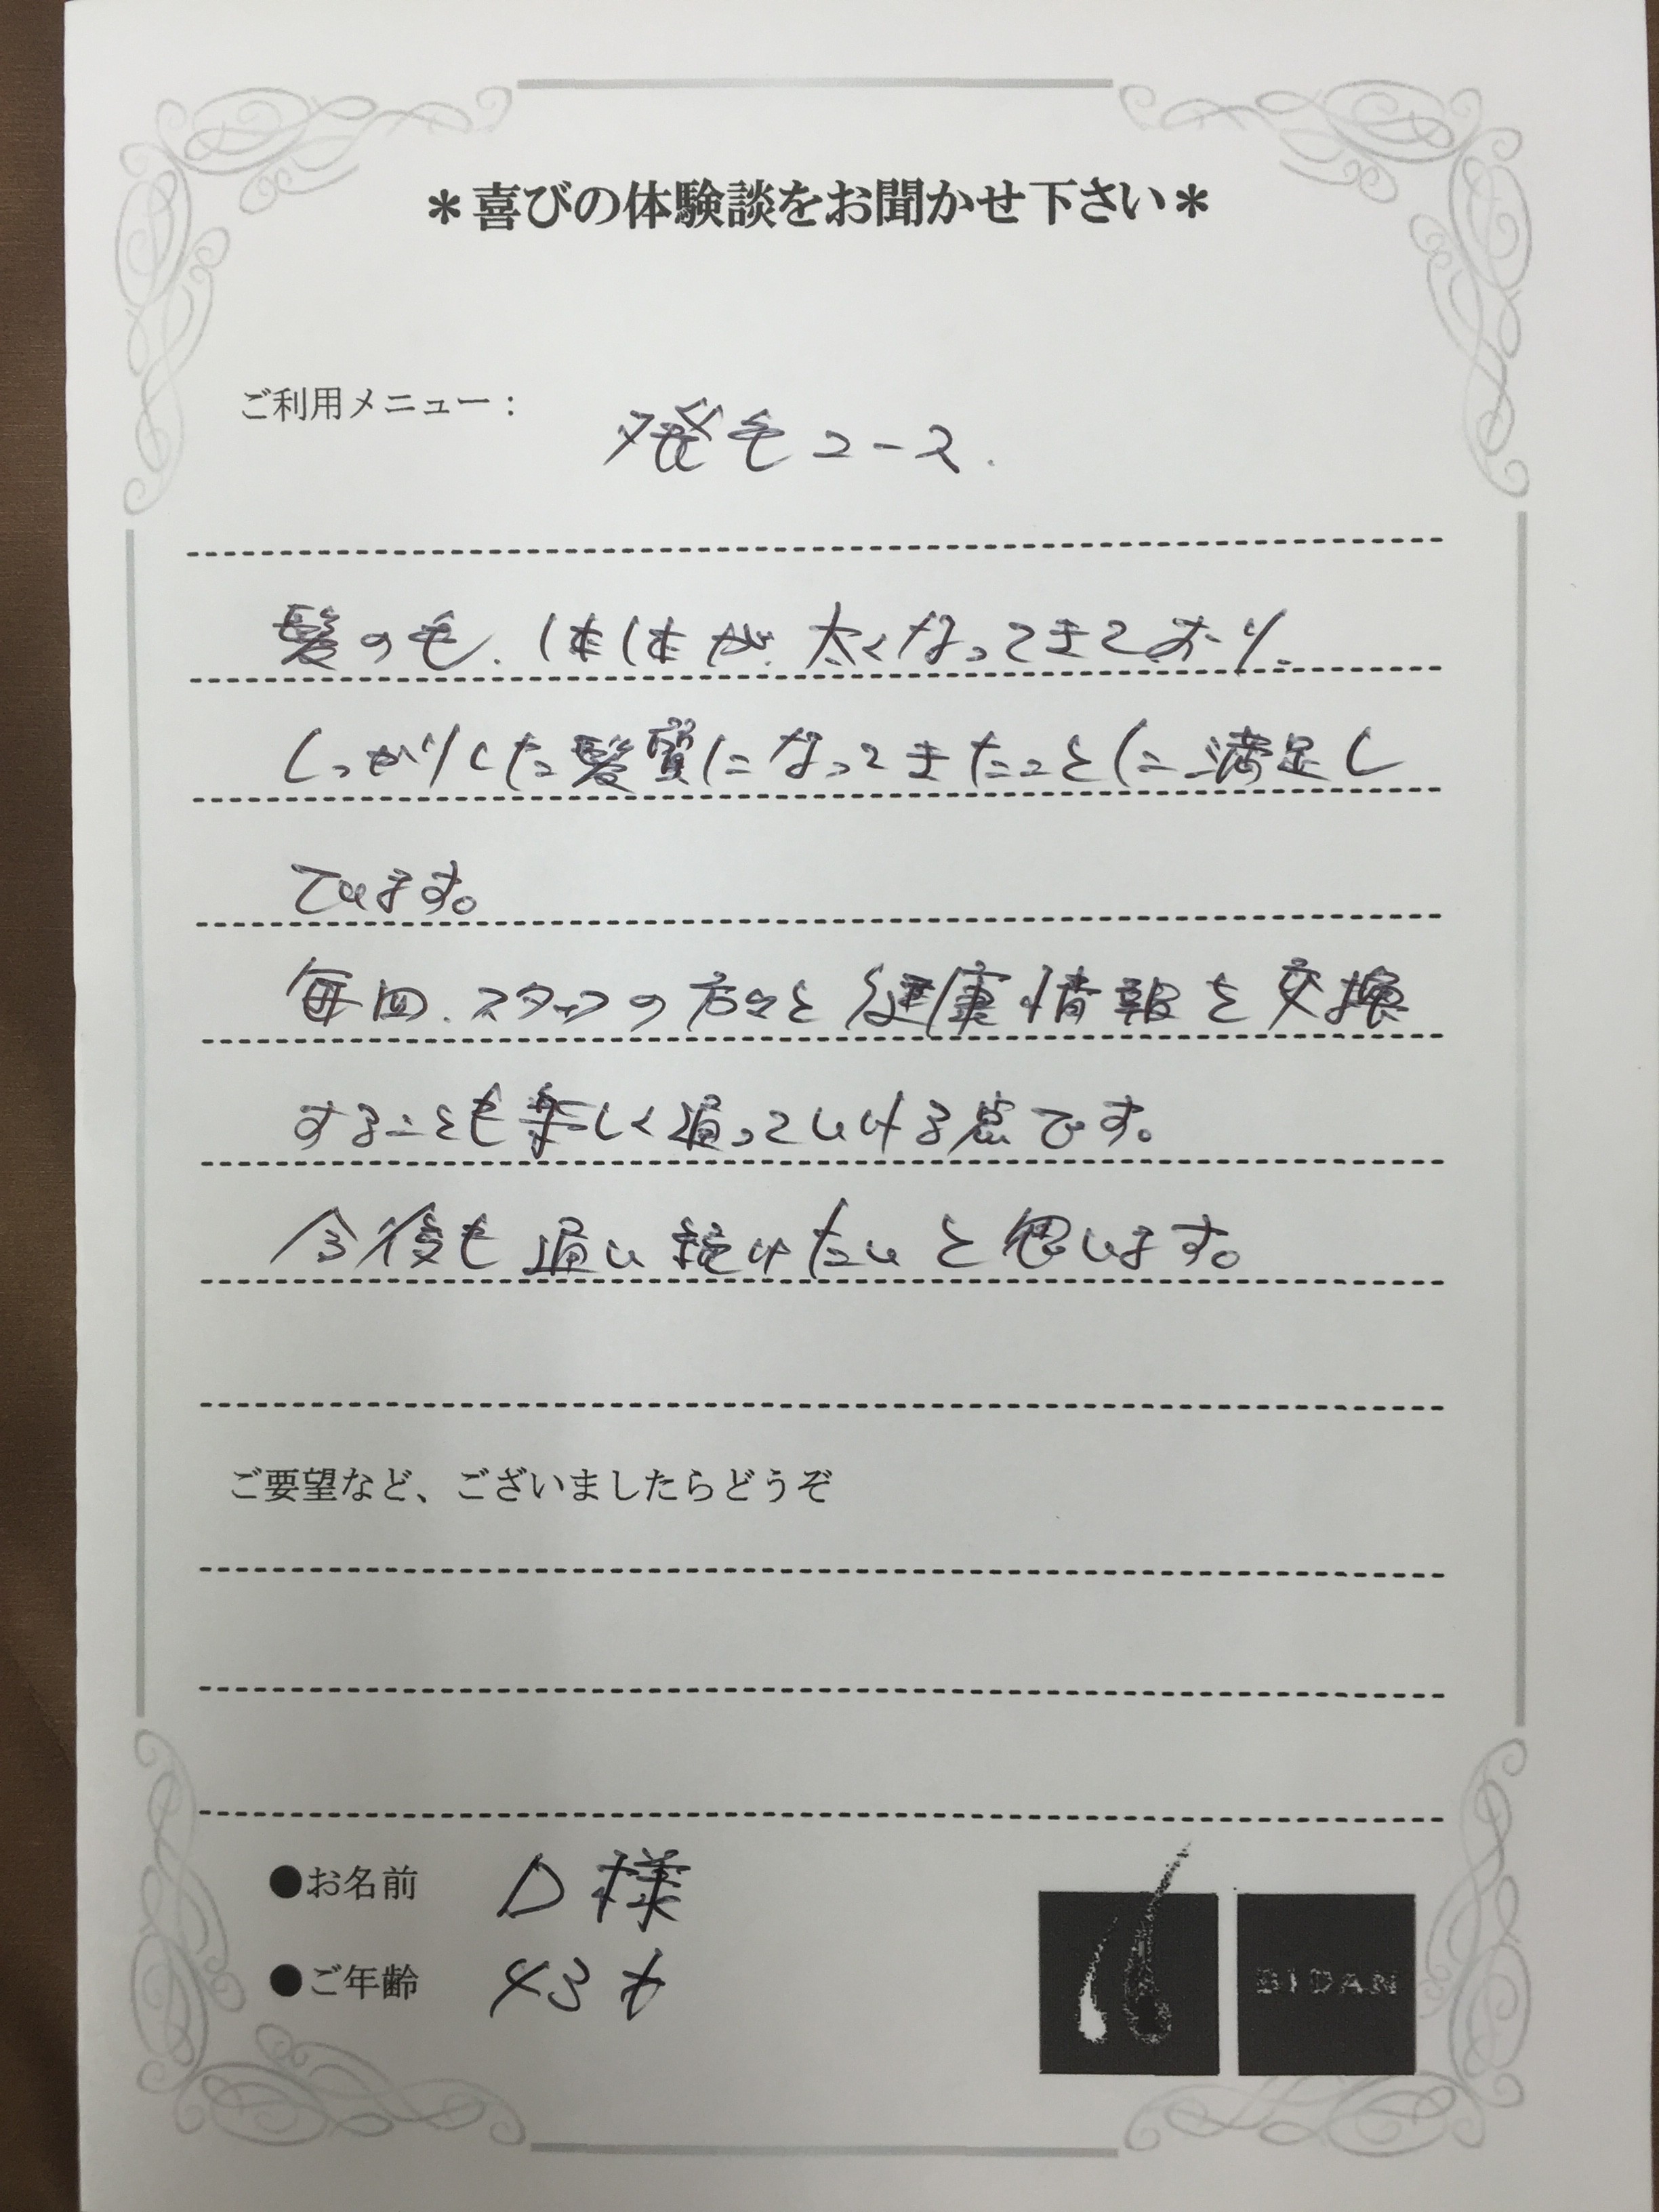 ＊喜びの体験談をお聞かせ下さい＊
ご利用メニュー：
発毛コース.
髪の毛、1本1本が、太くなってきており、
しっかりした髪質になってきたことに満足し
ています。
毎回、スタッフの方々と健康情報を交換
することも楽しく通っていける点です。
今後も通い続けたいと思います。
ご要望など、ございましたらどうぞ
●お名前 D様
●ご年齢 43才
BIDAN